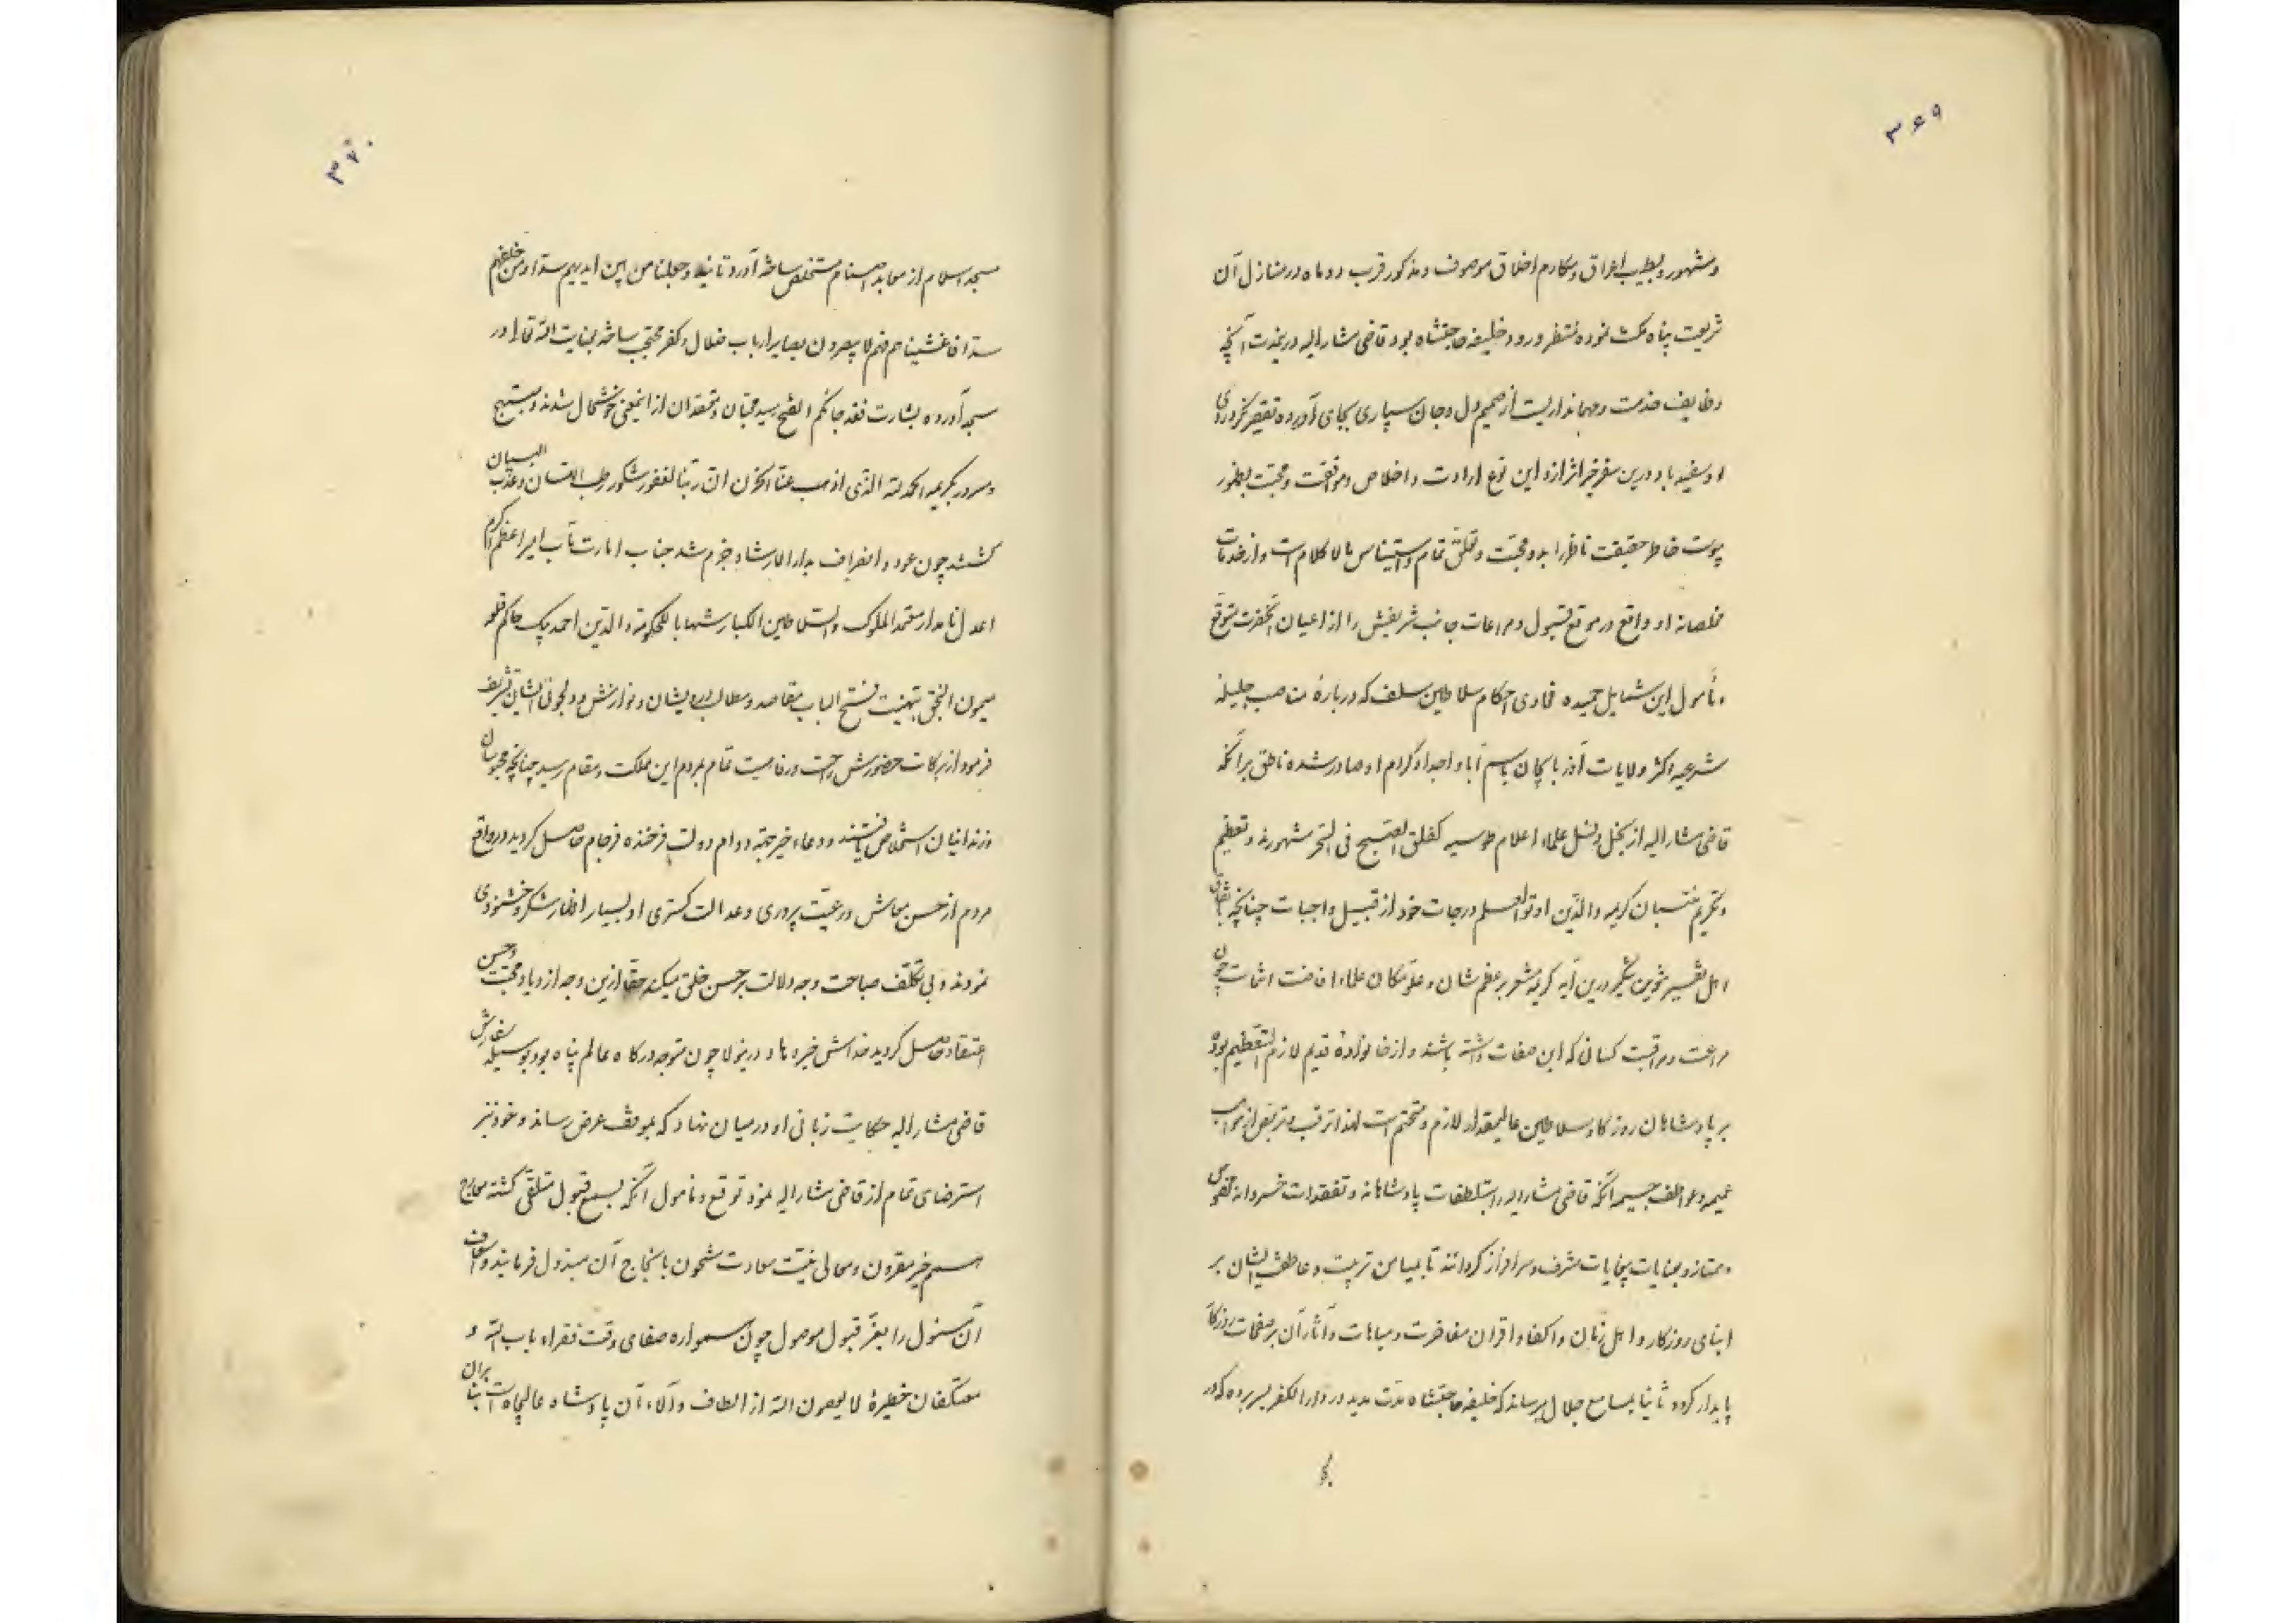 ۳۶۹
و مشهور و بطیب اعراق و مکارم اخلاق موصوف و مذکور قرب دو ماه در منازل آن
شریعت پناه مکث نموده منتظر ورود خلیفه حاجتشاه بود قاضی مشارالیه درین مدت آنچه
وظایف خدمت و مهمانداریست از صمیم دل و جان سپاری بجای آورده تقصیر نکرد روی
او سفید باد درین سفر خیر اثر ازو این نوع ارادت و اخلاص و موافقت و محبت بظهور
پیوست خاطر حقیقت ناظر را بدو محبت و تعلق تمام و استیناس مالا کلام است و از خدمات
مخلصانه او واقع در موقع قبول و مراعات جانب شریفش را از اعیان آنحضرت متوقع
و مأمول این شمایل حمیده فحاوی احکام سلاطین سلف که در بارهٔ مناصب جلیله
شرعیه اکثر ولایات آذربایجان باسم آبا و اجداد کرام او صادر شده ناطق بر آنکه
قاضی مشارالیه از نجل و نسل علماء اعلام طوسیه کفلق الصبح فی التحر مشهورند و تعظیم
و تکریم منتسبان کریمه والذین اوتوا العلم درجات خود از قبیل واجبات چنانچه باتفاق
اهل تفسیر تنوین تنکیر درین آیه کریمه مشعر بر عظم شان و علو مکان علماء افاضت اثبات چون
مراعت و مراقبت کسانی که این صفات داشته باشند و از خانوادهٔ قدیم لازم التعظیم بود
بر پادشاهان روزگار و سلاطین عالیمقدار لازم و متحتم است لهذا ترقب و تربص از مواهب
عمیمه و عواطف جسیمه آنکه قاضی مشارالیه را بتلطفات پادشاهانه و تفقدات خسروانه مخصوص
و ممتاز و بعنایات بیغایات مشرف و سرافراز گردانند تا بمیامن تربیت و عاطفت ایشان بر
ابنای روزگار و اهل زمان و اکفا و اقران مفاخرت و مباهات و آثار آن بر صفحات روزگار
پایدار گردد ثانیا بمسامع جلال میرساند که خلیفه حاجتشاه مدت مدید در دار الکفر بسر برده که در
۳۷۰
مسجد اسلام از معابد اصنام مستخلص ساخته آورد تا بنید وجعلنا من بین ایدیهم سدا و من خلفهم
سدا فاغشیناهم فهم لا یبصرون بصایر ارباب ضلال و کفر محتجب ساخته بعنایت الله تعالی در
سجد آورده بشارت فقد جاءکم الفتح رسید محبان و معتقدان از اینمعنی خوشحال شدند و مبتهج
و مسرور بکریمه الحمد لله الذی اذهب عنا الحزن ان ربنا لغفور شکور رطب اللسان و عذب البیان
گشتند چون عود و انصراف بدار الارشاد جزم شد جناب امارت مآب امیر اعظم اکرم
اعدل نامدار معتمد الملوک والسلاطین الکبار شهابا للحکومة والدین احمد بیک حاکم قلعه
میمون البخق بتهنیت فتح الباب مقاصد و مطالب درویشان و نوازش و دلجوئی ایشان تشریف
فرمود از برکات حضورش راحت و رفاهیت تمام بمردم این مملکت و مقام رسید چنانچه محبوسان
و زندانیان استخلاص یافتند و دعاء خیر جهة دوام دولت فرخنده فرجام حاصل کردید در واقع
مردم از حسن معاش و رعیت پروری و عدالت گستری او بسیار اظهار شکر و خشنودی
نمودند و بی تکلف صباحت وجه دلالت بر حسن خلق میکند حقا ازین وجه ازدیاد محبت و حسن
اعتقاد حاصل کردید خداش خیر دهاد درینولا چون متوجه درگاه عالم پناه بود بوسیله سفارش
قاضی مشارالیه حکایت زبانی او در میان نهاد که بموقف عرض رساند و خود نیز
استرضای تمام از قاضی مشارالیه نمود توقع و مامول آنکه بسمع قبول متلقی گشته معارج
همم خیر مقرون و معالی نیت سعادت مشحون بانجاح آن مبذول فرمایند و اسعاف
آن مسئول را بعز قبول موصول چون همواره صفای وقت فقراء باب الله و
معتکفان خطیرهٔ لا یعصون الله از الطاف و آلاء آن پادشاه عالیجاه است بنا بر آن